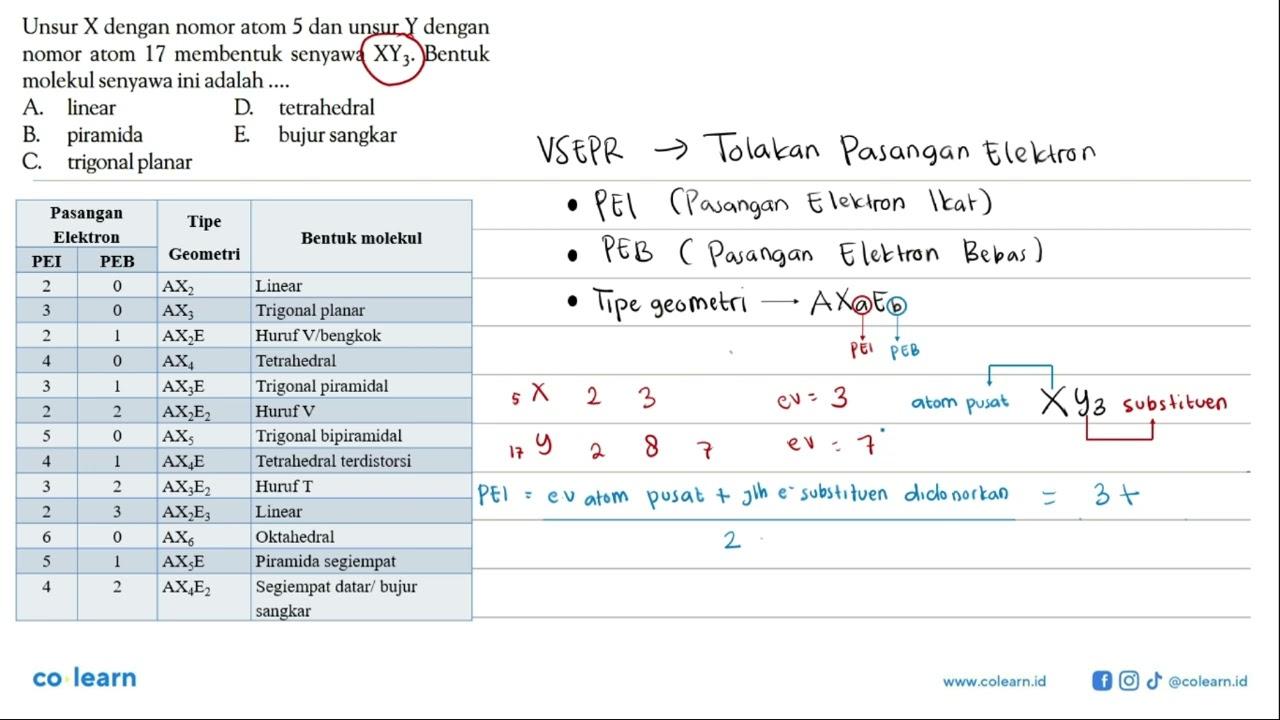 Unsur X dengan nomor atom 5 dan unsur Y dengan
nomor atom 17 membentuk senyawa XY₃. Bentuk
molekul senyawa ini adalah ....
A. linear D. tetrahedral
B. piramida E. bujur sangkar
C. trigonal planar
VSEPR → Tolakan Pasangan Elektron
• PEI (Pasangan Elektron Ikat)
• PEB (Pasangan Elektron Bebas)
• Tipe geometri → AXaEb
PEI PEB
₅X 2 3 ev = 3
₁₇Y 2 8 7 ev = 7
atom pusat XY₃ substituen
PEI = ev atom pusat + jlh e⁻ substituen didonorkan = 3 +
2
Pasangan Elektron Tipe Geometri Bentuk molekul
PEI PEB
2 0 AX₂ Linear
3 0 AX₃ Trigonal planar
2 1 AX₂E Huruf V/bengkok
4 0 AX₄ Tetrahedral
3 1 AX₃E Trigonal piramidal
2 2 AX₂E₂ Huruf V
5 0 AX₅ Trigonal bipiramidal
4 1 AX₄E Tetrahedral terdistorsi
3 2 AX₃E₂ Huruf T
2 3 AX₂E₃ Linear
6 0 AX₆ Oktahedral
5 1 AX₅E Piramida segiempat
4 2 AX₄E₂ Segiempat datar/ bujur
sangkar
co learn
www.colearn.id @colearn.id